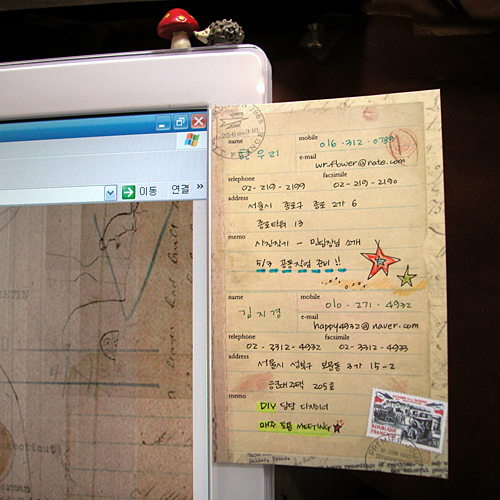 이동 연결 »
name
mobile
016 - 312 - 0789
한우리
e-mail
wr-flower@nate.com
telephone
facsimile
02 - 219 - 2199
02 - 219 - 2190
address
서울시 종로구 종로 2가 6
종로타워 13
memo
사진작가 - 소개
5/3 공동작업 준비 !!
name
mobile
김지경
010 - 271 - 4932
e-mail
happy4932@naver.com
telephone
facsimile
02 - 3312 - 4932
02 - 3312 - 4933
address
서울시 성북구 보문동 3가 15-2
205호
memo
DIY 담당 디자이너
매주 토요 MEETING
REPUBLIQUE
FRANCAISE